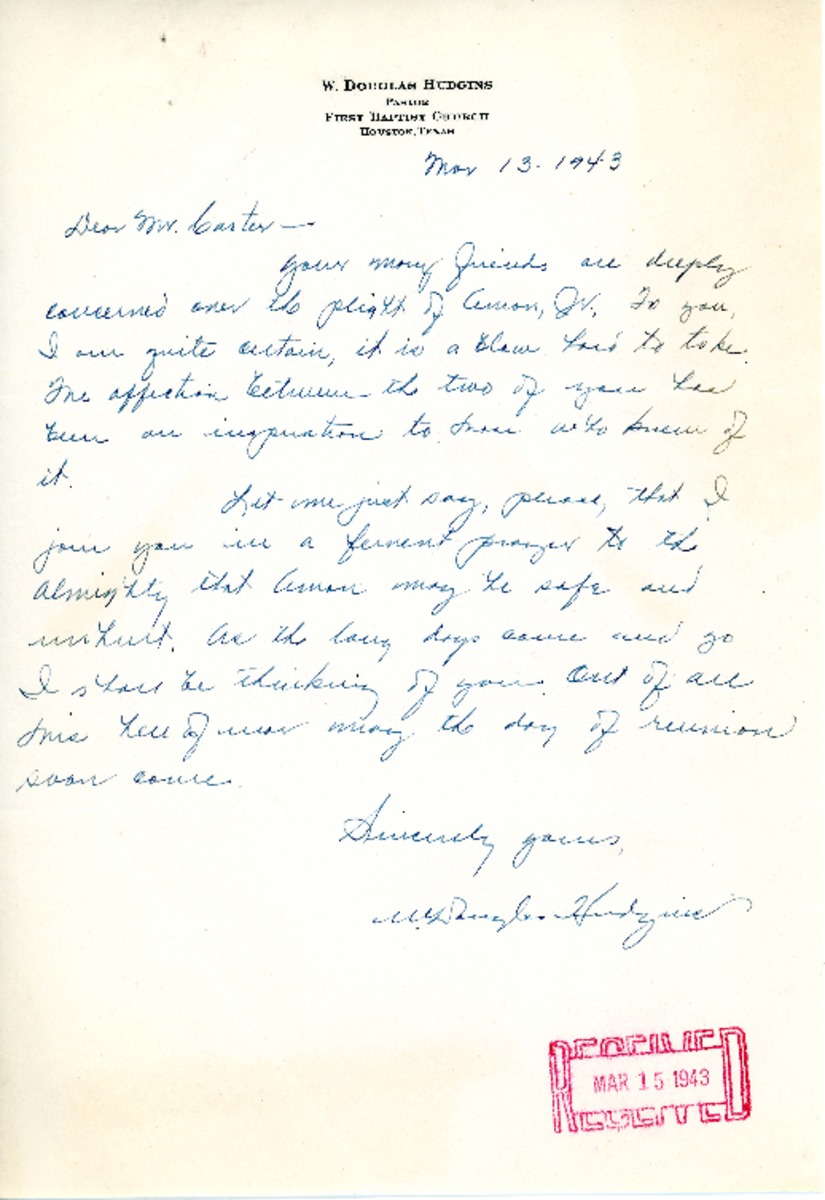 W. DOUGLAS HUDGINS
PASTOR
FIRST BAPTIST CHURCH
HOUSTON, TEXAS
Mar 13-1943
Dear Mr. Carter—
Your many friends are deeply
concerned over the plight of Amon, Jr. To you,
I am quite certain, it is a blow hard to take.
The affection between the two of you has
been an inspiration to those who knew of
it.
Let me just say, please, that I
join you in a fervent prayer to the
Almighty that Amon may be safe and
unhurt. As the long days come and go
I shall be thinking of you. Out of all
this hell of war may the day of reunion
soon come.
Sincerely yours,
W. Douglas Hudgins
RECEIVED
MAR 15 1943